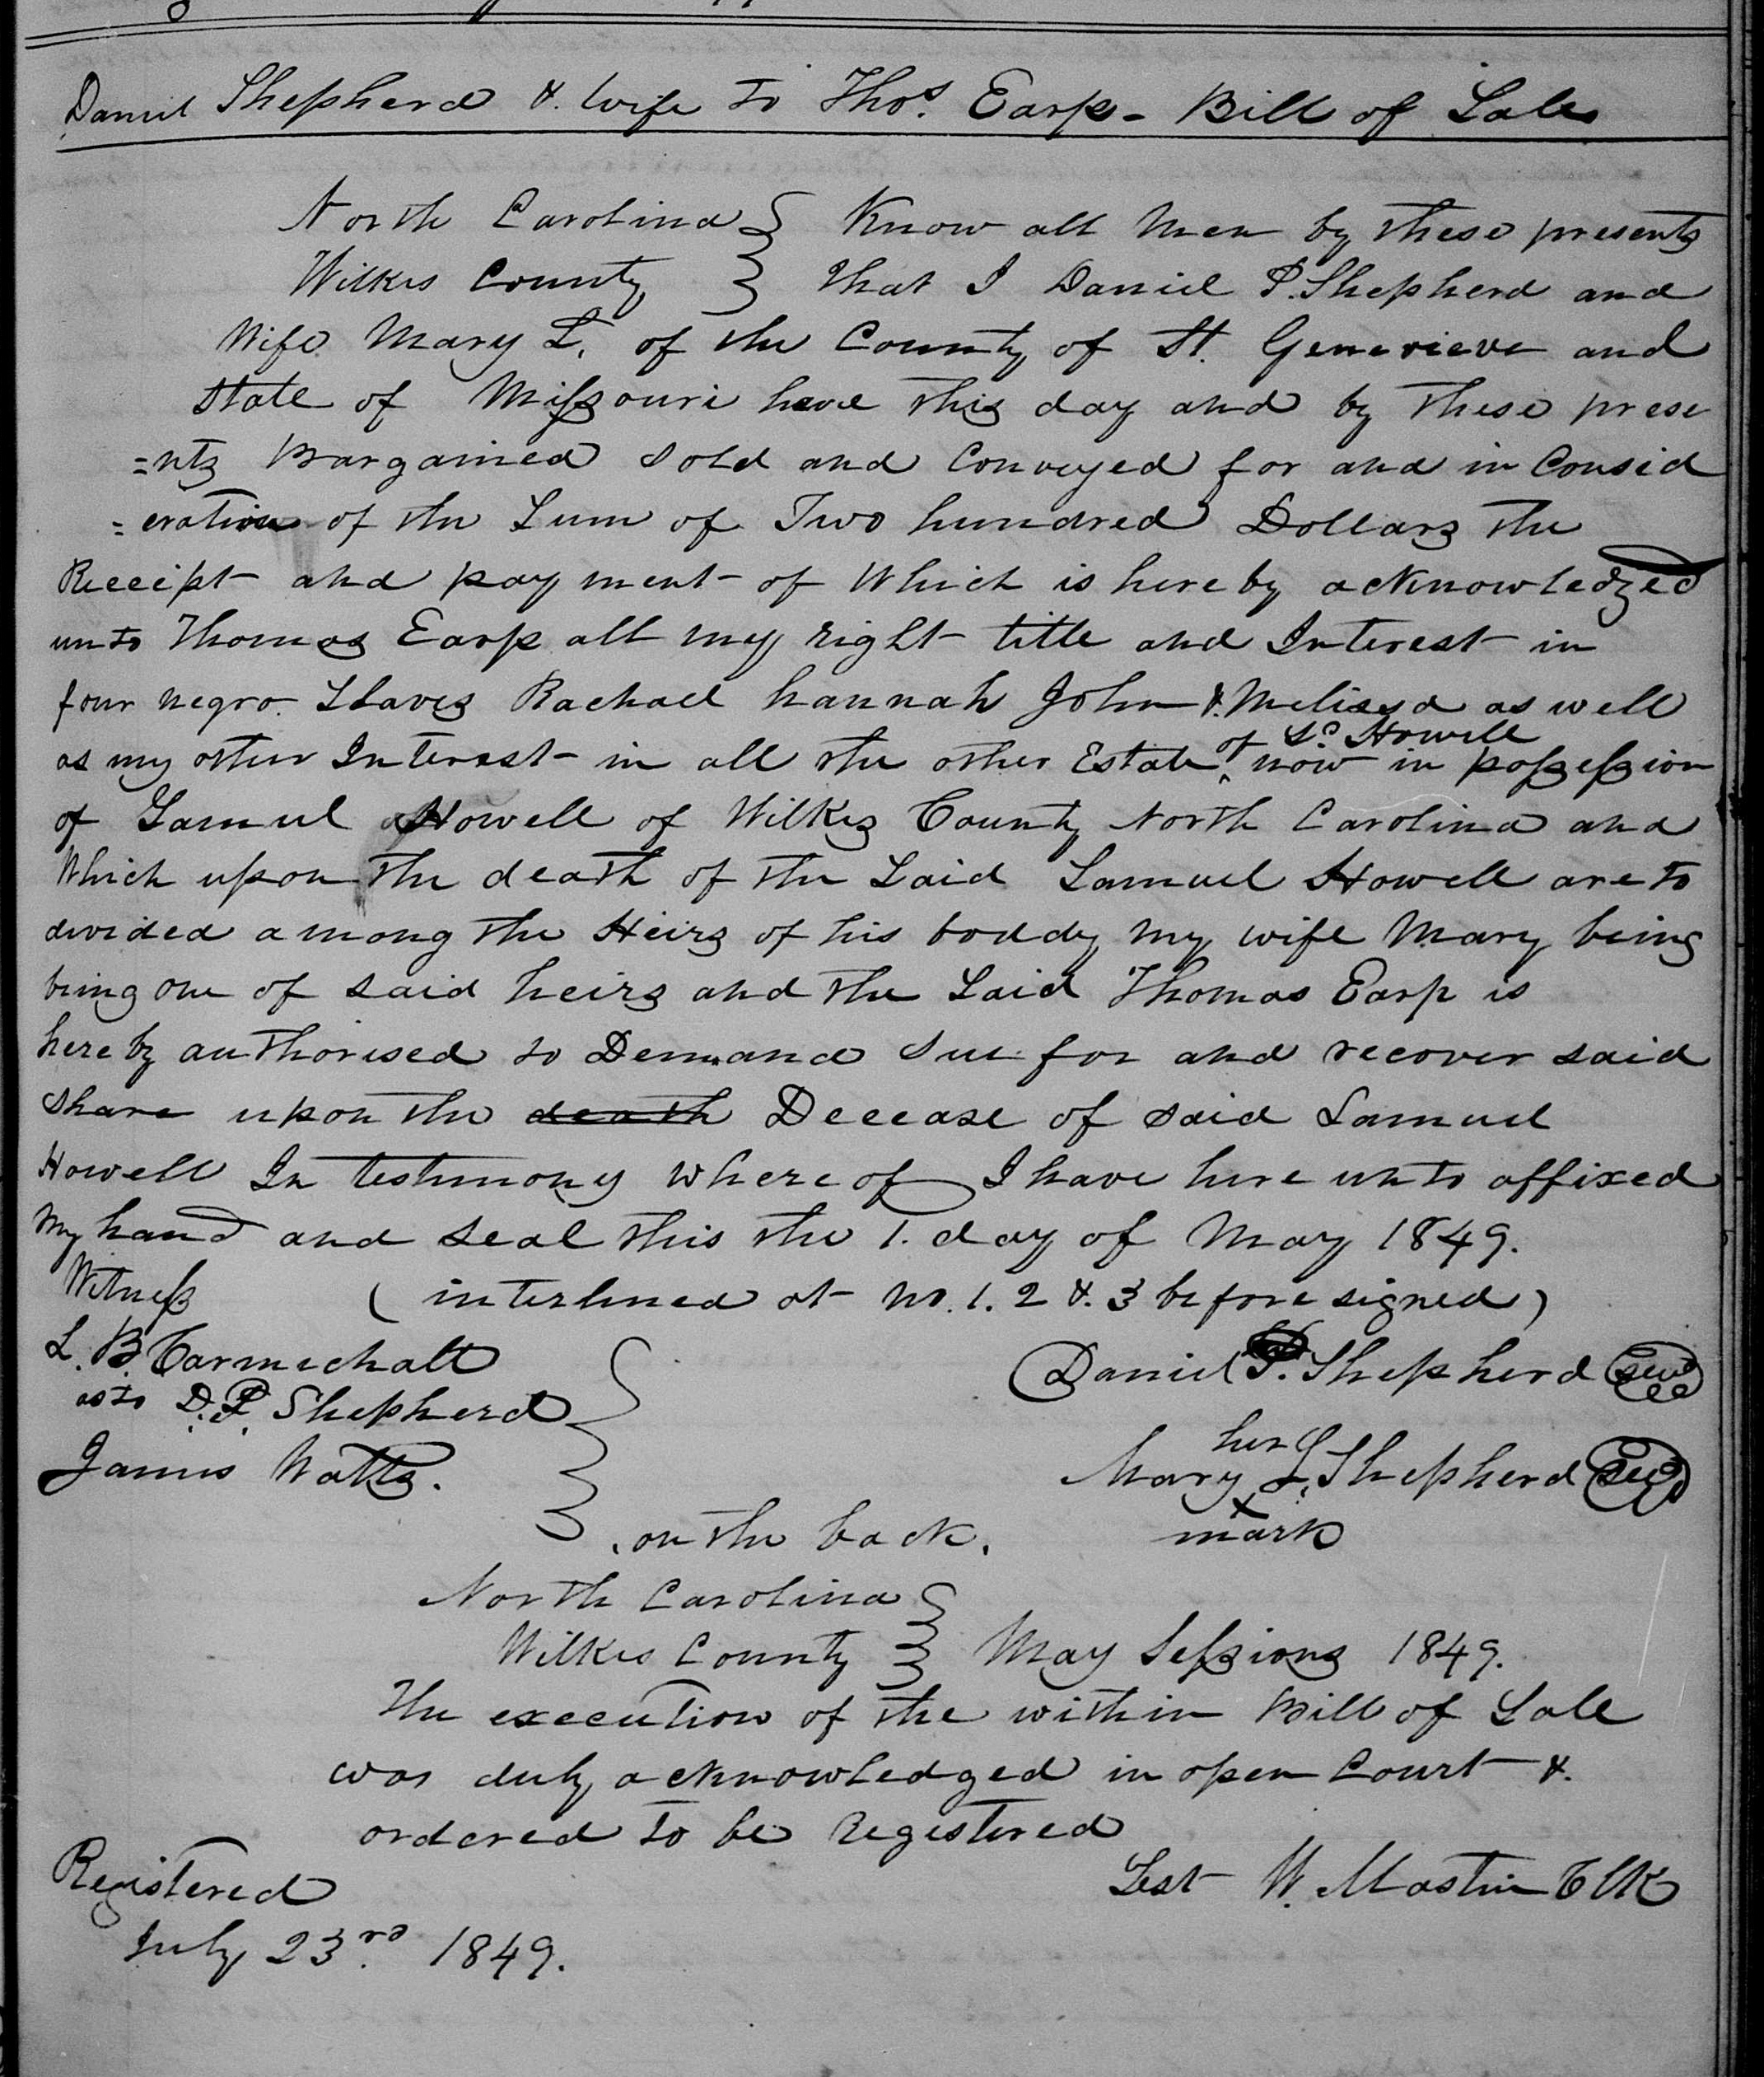 Daniel Shepherd & wife to Thos. Earp - Bill of Sale
North Carolina } Know all Men by these presents
Wilkes County } that I Daniel P. Shepherd and
Wife Mary L. of the County of St. Genevieve and
State of Missouri have this day and by these prese
=nts Bargained Sold and Conveyed for and in Consid
=eration of the Sum of Two hundred Dollars the
Receipt and payment of Which is here by acknowledged
unto Thomas Earp all my right title and Interest in
four negro Slaves Rachael hannah John & Melissa as well
of Sl. Howell
as my other Interest in all the other Estate ^ now in possession
of Samuel Howell of Wilkes County North Carolina and
Which upon the death of the Said Samuel Howell are to
divided among the Heirs of his boddy my wife Mary being
being one of said heirs and the Said Thomas Earp is
here by authorised to Demand Sue for and recover said
Share upon the death Decease of said Samuel
Howell In testimony where of I have here unto affixed
My hand and seal this the 1. day of May 1849.
Witness ( interlined at no. 1. 2 & 3 before signed )
L. B. Carmichall
as to D. P. Shepherd
James Watts.
Daniel P. Shepherd seal
her
Mary L. Shepherd seal
x
mark
on the back.
North Carolina }
Wilkes County } May Sessions 1849.
The execution of the within Bill of Sale
was duly acknowledged in open Court &
ordered to be Registered
Test W. Mastin Clk
Registered
July 23rd 1849.